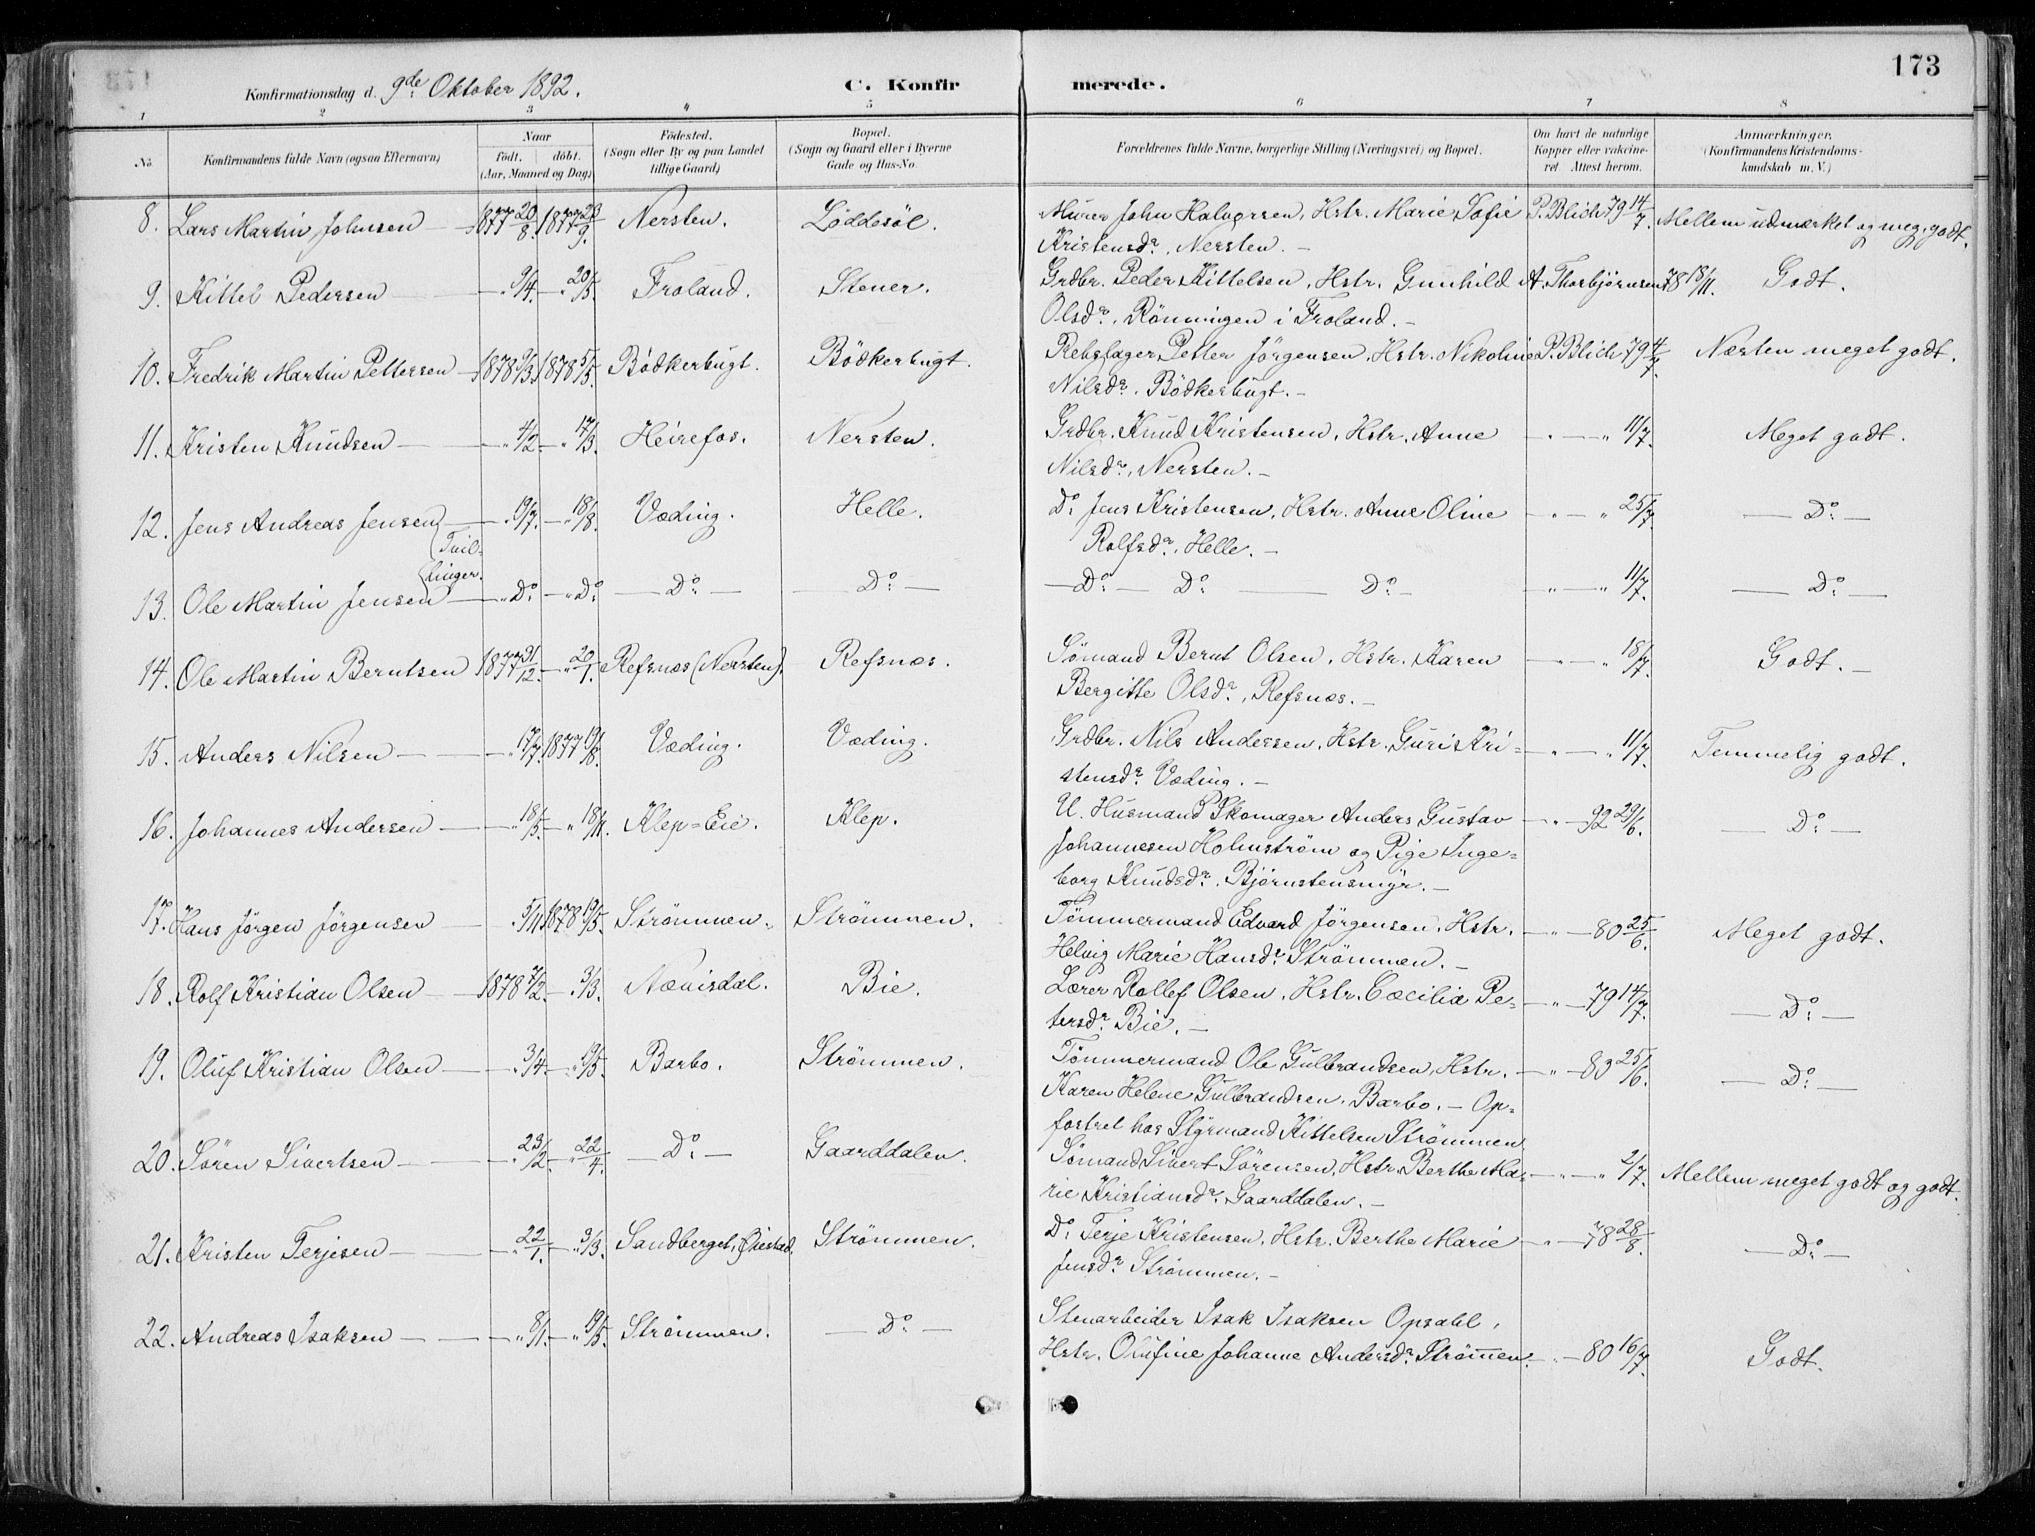 173
Konfirmationsdag d. 9de Oktober 1892. C. Konfirmerede.
1 2 3 4 5 6 7 8
No. Konfirmandens fulde Navn (ogsaa Efternavn) Naar født. døbt. (Aar, Maaned og Dag) Fødested. (Sogn eller By og paa Landet tillige Gaard) Bopæl. (Sogn og Gaard eller i Byerne Gade og Hus-No. Forældrenes fulde Navne, borgerlige Stilling (Næringsvei) og Bopæl. Om havt de naturlige Kopper eller vakcineret Attest herom. Anmærkninger. (Konfirmandens Kristendomskundskab m. V.)
8. Lars Martin Johnsen 1877 20/8. 1877 23/9. Nersten. Løddesøl. Murer John Halvorsen, Hstr. Marie Sofie P. Blich 79 14/7. Mellem udmærket og meg. godt.
Kristensdr., Nersten.
9. Kittel Pedersen " 9/4. " 20/5. Froland. Stener. Grdbr. Peder Kittelsen, Hstr. Gunhild A. Thorbjørnsen 78 18/11. Godt.
Olsdr., Rønningen i Froland.
10. Fredrik Martin Pettersen 1878 9/3. 1878 5/5. Bødkerbugt. Bødkerbugt. Rebslager Petter Jørgensen, Hstr. Nikoline P. Blich 79 4/7. Næsten meget godt.
Nilsdr. Bødkerbugt.
11. Kristen Knudsen " 4/2. " 17/3. Heirefos. Nersten. Grdbr. Knud Kristensen, Hstr. Anne " " 11/7. Meget godt.
Nilsdr., Nersten.
12. Jens Andreas Jensen " 9/7. " 18/8. Væding. Helle. Do. Jens Kristensen, Hstr. Anne Oline " " 25/7. Do.
(Tvillinger. Rolfsdr., Helle.
13. Ole Martin Jensen " Do. " Do. Do. Do. Do. Do. Do. " " 11/7. Do.
14. Ole Martin Berntsen 1877 31/12. " 20/1. Refsnæs (Nersten). Refsnæs. Sømand Bernt Olsen, Hstr. Karen " " 18/7. Godt.
Bergitte Olsdr., Refsnæs.
15. Anders Nilsen " 17/7. 1877 19/8. Væding. Væding. Grdbr. Nils Andersen, Hstr. Guri Kri- " " 11/7. Temmelig godt.
stensdr. Væding.
16. Johannes Andersen " 18/5. " 18/11. Klep=Eie. Klep. U. Husmand & Skomager Anders Gustav " 92 29/6. Do.
Johannesen Holmstrøm og Pige Inge=
borg Knudsdr. Bjørnstensmyr.
17. Hans Jørgen Jørgensen " 5/11. 1878 19/5. Strømmen. Strømmen. Tømmermand Edvard Jørgensen, Hstr. " 80 25/6. Meget godt.
Helvig Marie Hansdr. Strømmen.
18. Rolf Kristian Olsen 1878 7/2. " 3/3. Nævisdal. Bie. Lærer Rollef Olsen, Hstr. Cæcilia Pe- " 79 14/7. Do.
tersdr. Bie.
19. Oluf Kristian Olsen " 3/4. " 19/5. Barbo. Strømmen. Tømmermand Ole Gulbrandsen, Hstr. " 83 25/6. Do.
Karen Helene Gulbrandsen, Barbo. - Op=
fostret hos Styrmand Kittelsen Strømmen
20. Søren Sivertsen " 23/2. " 22/4. Do. Gaarddalen. Sømand Sivert Sørensen, Hstr. Berthe Ma- " " 2/7. Mellem meget godt og godt.
rie Kristiansdr. Gaarddalen.
21. Kristen Terjesen " 22/1. " 3/3. Sandberget, Øiestad. Strømmen. Do. Terje Kristensen, Hstr. Berthe Marie " 78 28/8. Do.
Jensdr. Strømmen.
22. Andreas Isaksen " 8/1. " 19/5. Strømmen. Do. Stenarbeider Isak Isaksen Opsahl,
Hstr. Olufine Johanne Andersdr. Strømmen. " 80 16/7. Godt.